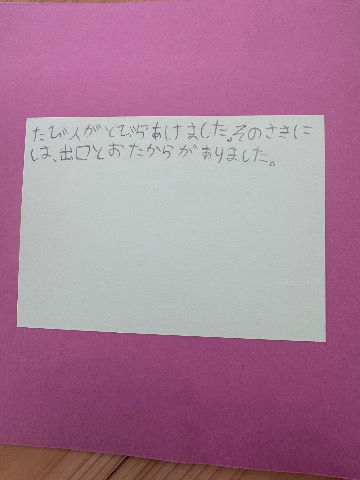 たび人がとびらあけました。そのさきに
は、出口とおたからがありました。